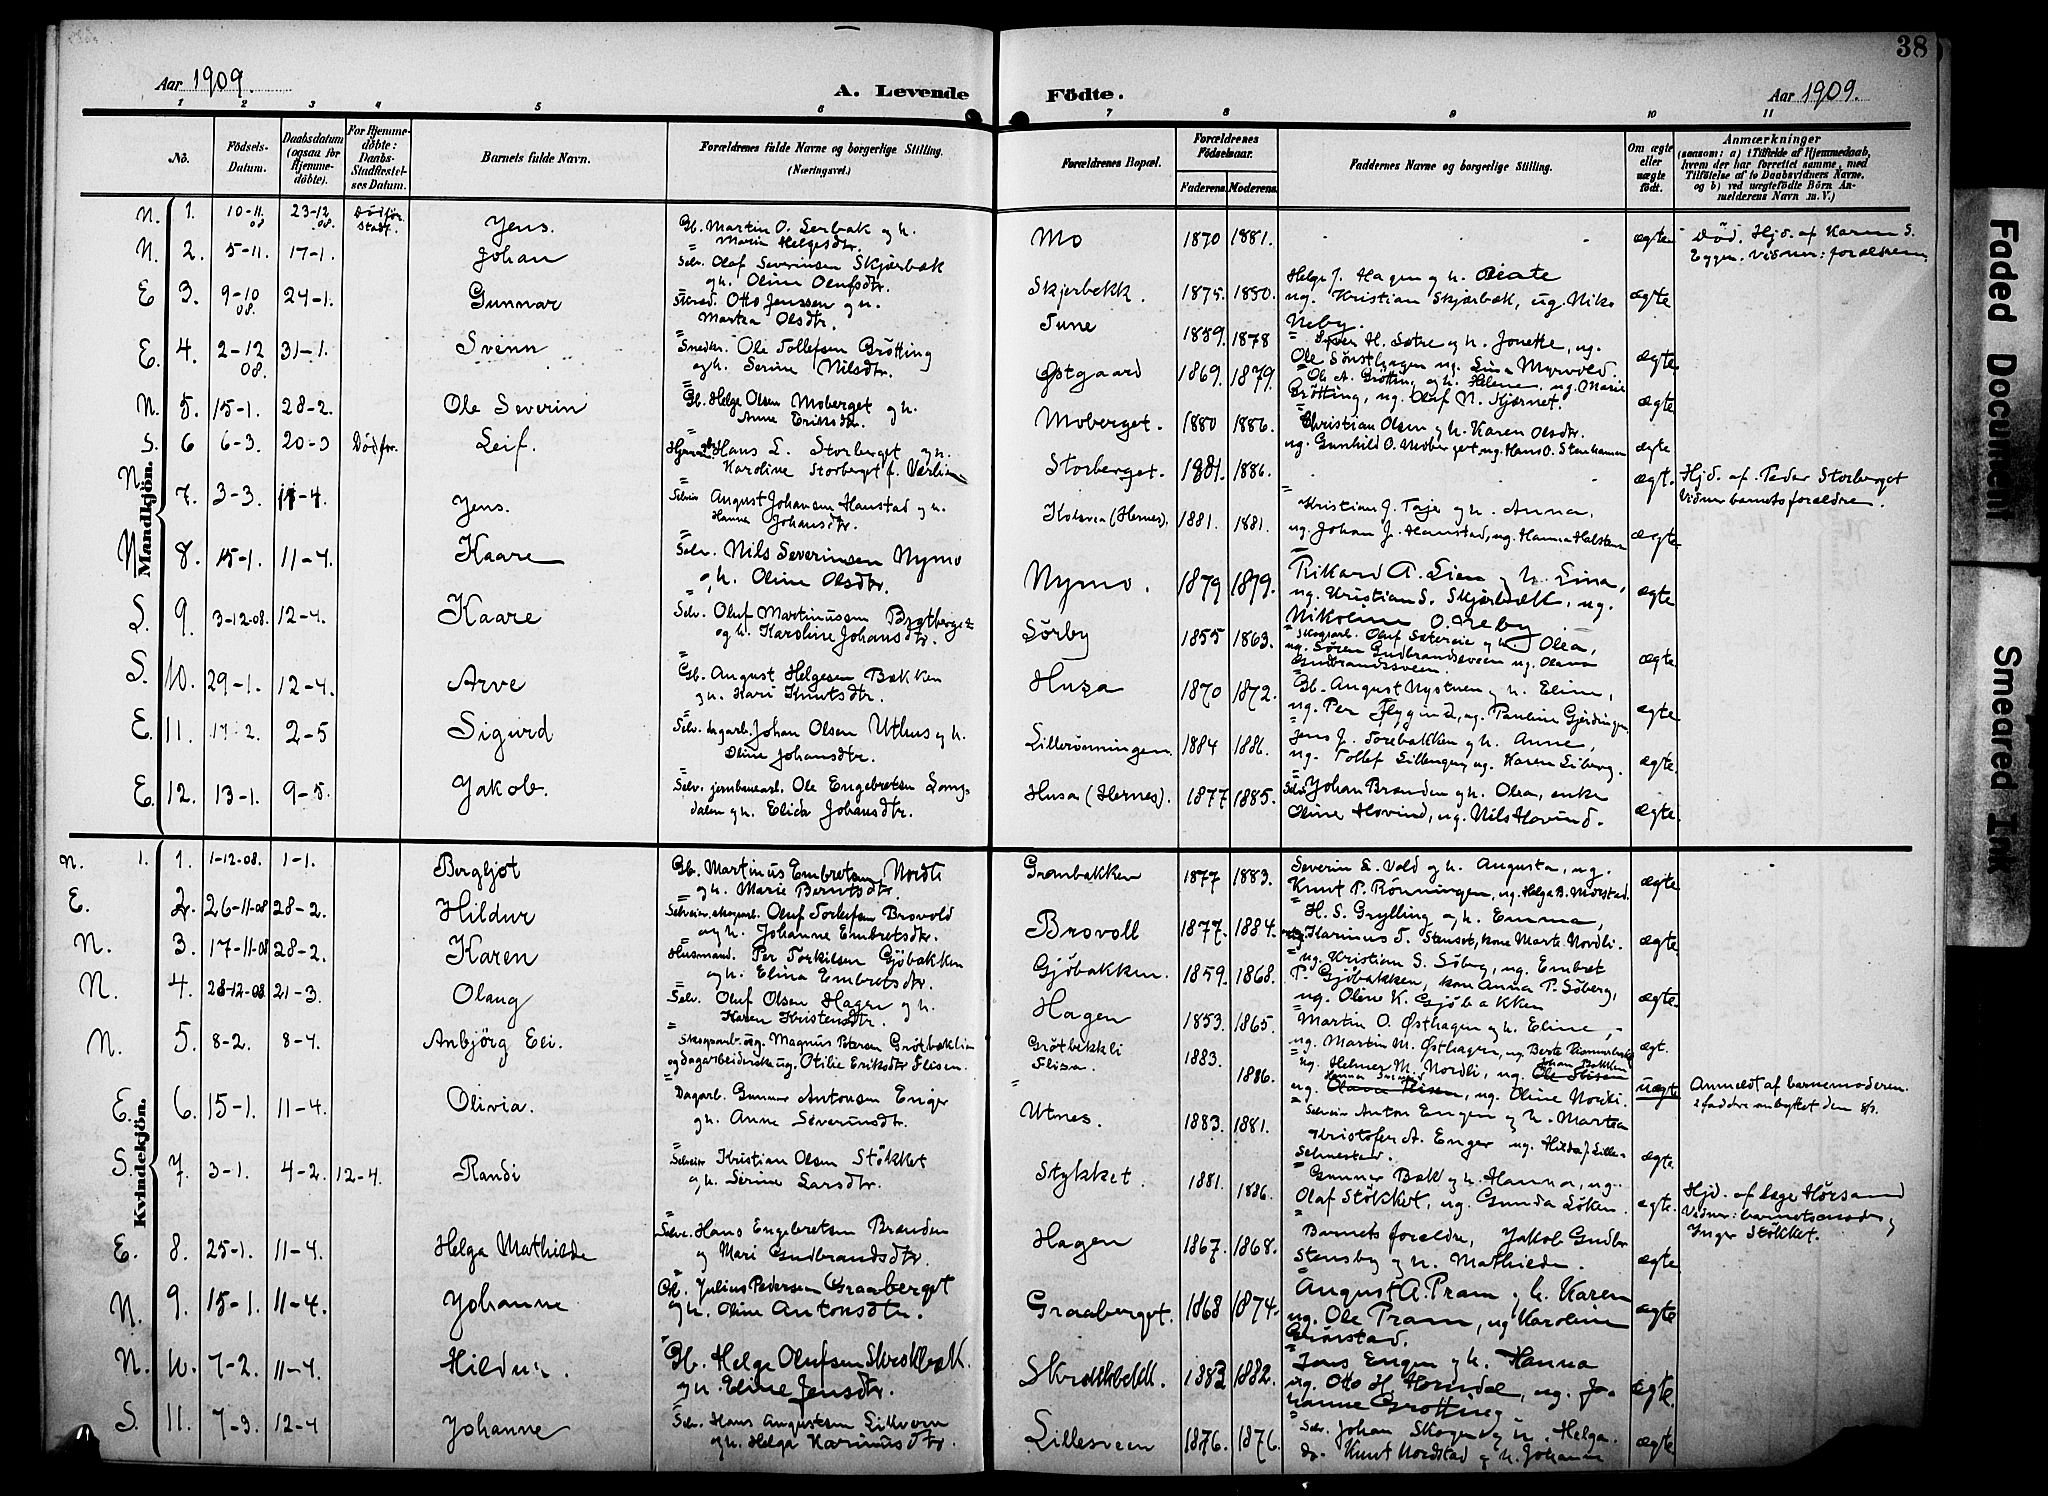 38
Aar 1909.
A. Levende
Födte.
Aar 1909.
1 2 3 4 5 6 7 8 9 10 11
No.
Födsels-Datum.
Daabsdatum (ogsaa for Hjemmedöbte).
For Hjemmedöbte: Daabs-Stadfæstelses Datum.
Barnets fulde Navn.
Forældrenes fulde Navne og borgerlige Stilling. (Næringsvei.)
Forældrenes Bopæl.
Forældrenes Födselsaar.
Faderens. Moderens.
Faddernes Navne og borgerlige Stilling.
Om ægte eller uægte födt.
Anmærkninger
(saasom: a) i Tilfælde af Hjemmedaab, hvem der har forrettet samme, med Tilföielse af to Daabsvidners Navne, og b) ved uægtefödte Börn Anmelderens Navn m. V.)
Mandkjön.
N. 1. 10-11 08 23-12 08. Död før Stadf. Jens. Gb. Martin O. Lerbak og h. Marie Helgesdtr. Mo 1870 1881. ægte Död. Hjd. af Karen S. Eggen. Vidner: forældrene
N. 2. 5-11. 17-1. Johan Selv. Olaf Severinsen Skjærbæk og h. Oline Olufsdtr. Skjerbekk. 1875. 1880. Helge J. Hagen og h. Beate ug. Kristian Skjærbæk, ug. Niko Neby. ægte
E 3. 9-10 08. 24-1. Gunnar Otto Jenssen og h. Martea Olsdtr. Tune 1889. 1878 H. Sætre og h. Jonette, ug. ægte
E. 4. 2-12 08. 31-1. Svenn Snedker Ole Tollefsen Grötting og h. Serine Nilsdtr. Østgaard 1869. 1879. Ole A. Grötting og h. Helene, ug. Marie Grötting, ug. Olaf N. Kjernet. ægte
N. 5. 15-1. 28-2. Ole Severin Gb. Helge Olsen Moberget og h. Anne Eriksdtr. Moberget. 1880 1886. Christian Olsen og h. Karen Olsdtr. ug. Gunhild O. Moberget ug. Hans O. Stenhammer ægte
S. 6 6-3. 20-3 Död før. Leif. Hans L. Storberget og h. Karoline Storberget f. Værlien Storberget. 1881. 1886. ægt. Hjd. af Peder Storberget Vidner barnets forældre.
N. 7. 3-3. 11-4. Jens. Selveier August Johansen Hanstad og h. Hanna Johansdtr. (Hernes). 1881. 1881. Kristian J. og h. Anna, ug. Johan J. Hanstad, ug. Hanna ægte
N 8. 15-1. 11-4. Kaare Selv. Nils Severinsen Nymo og h. Oline Olsdtr. Nymo. 1879 1879. Rikard A. Lien og h. Lina, ug. Kristian S. Skjærbæk, ug. Nikoline O. Neby. ægte
S. 9. 3-12-08. 12-4. Kaare Selv. Oluf Martinussen og h. Karoline Johansdtr. Sörby 1855 1863. Oluf Sætereie og h. Olea, ug. Sören Gudbrandsveen ug. Olava Gudbrandsveen. ægte
S. 10. 29-1. 12-4. Arve Gb. August Helgesen Bækken og h. Kari Knutsdtr. Husa 1870 1872. Gb. August Nystuen og h. Eline, ug. Per Flygind, ug. Pauline Gjerdingen ægte
E. 11. 17-2. 2-5 Sigurd Selv. dagarb. Johan Olsen Uthus og h. Oline Johansdtr. Lillerönningen. 1884 1886. Jens J. Torebakken og h. Anne, ug. Tollef Lillengen, ug. Karen Liberg. ægte.
E. 12. 13-1. 9-5. Jakob. Selv. jernbanearb. Ole Engebretsen Langdalen og h. Elida Johansdtr. Husa (Hernes). 1877 1885. Johan Brænden og h. Olea, enke Oline Hovind, ug. Nils Hovind. ægte.
Kvindekjön.
N. 1. 1. 1-12-08. 1-1. Bergljot Gb. Martinus Embretsen Nordli og h. Marie Berntsdtr. Grønbakken 1877 1883. Severin E. Vold og h. Augusta, ug. Knut P. Rönningen, ug. Helga B. Morstad. ægte
E. 2. 26-11-08 28-2. Hildur Selveier, skogarb. Oluf Torkilsen Brovold og h. Johanne Embretsdtr. Brovoll 1877. 1884. H. S. Grylling og h. Emma, Karinus T. Stenset, kone Marte Nordli. ægte
N. 3. 17-11-08 28-2. Karen Husmand. Per Torkilsen Gjöbakken og h. Elina Embretsdtr. Gjöbakken. 1859. 1868. ug. Kristian S. Söberg, ug. Embret P. Gjöbakken, kone Anna P. Söberg, ug. Oline K. Gjöbakken ægte
N. 4. 28-12-08 21-3. Olaug Selv. Oluf Olsen Hagen og h. Karen Kristensdtr. Hagen 1853. 1865. Martin O. Østhagen og h. Eline, ug. Martin M. Østhagen, ug. Berte ægt.
N. 5. 8-2. 8-4. Anbjörg Eli. Skogsarb. ug. Magnus Petersen Grötbækli og dagarbeiderske ug. Otilie Eriksdtr Flisen. Grötbekkli Flisa. 1883. 1886. ug. Helmer M. Nordli, ug. Ole Flisen Johan Bakken ug. Olava Flisen, ug. Oline Nordli. uægt Anmeldt af barnemoderen. 2 faddre ombyttet den 8/3.
E. 6. 15-1. 11-4. Olivia. Dagarb. Gunnar Antonsen Enger og h. Anne Severinsdtr. Utnes. 1883. 1881. Selveier Anton Engen og h. Martea Kristofer A. Enger ug. Hilda J. Lille-Semestad. ægte.
S. 7. 3-1. 4-2. 12-4. Randi Selveier Kristian Olsen Stökket og h. Serine Larsdtr. Stykket. 1881. 1886. Gunner Bæk og h. Hanna, ug. Olaf Stökket, ug. Gunda Löken. ægte. Hjd. af læge Hörsand Vidner: barnets moder og Inger Stökket.
E. 8. 25-1. 11-4. Helga Mathilde Selv. Hans Engebretsen Brænden og Mari Gudbrandsdtr. Hagen 1867. 1868. Barnets forældre, Jakob Gudbr Stensby og h. Mathilde. ægte
N. 9. 15-1. 11-4. Johanne Gb. Julius Pedersen Graaberget og h. Oline Antonsdtr. Graaberget. 1868 1874. August A. Pram og h. Karen ug. Ole Pram, ug Karoline Grönstad. ægte
N. 10. 7-2. 11-4. Hildur. Gb. Helge Olufsen Skreskbæk. og h. Eline Jensdtr. 1883 1882. Jens Engen og h. Hanna ug. Otto H. Horndal, ug. Johanne Grötting ægte.
S. 11. 7-3. 12-4 Johanne Selv. Hans Augustsen Lilleveen og h. Helga Karinusdtr. Lillesveen 1876. 1876. Selv. Johan Skogen og h. Helga. do. Knut Nordstad og h. Johanne ægte
Faded Document
Smeared Ink